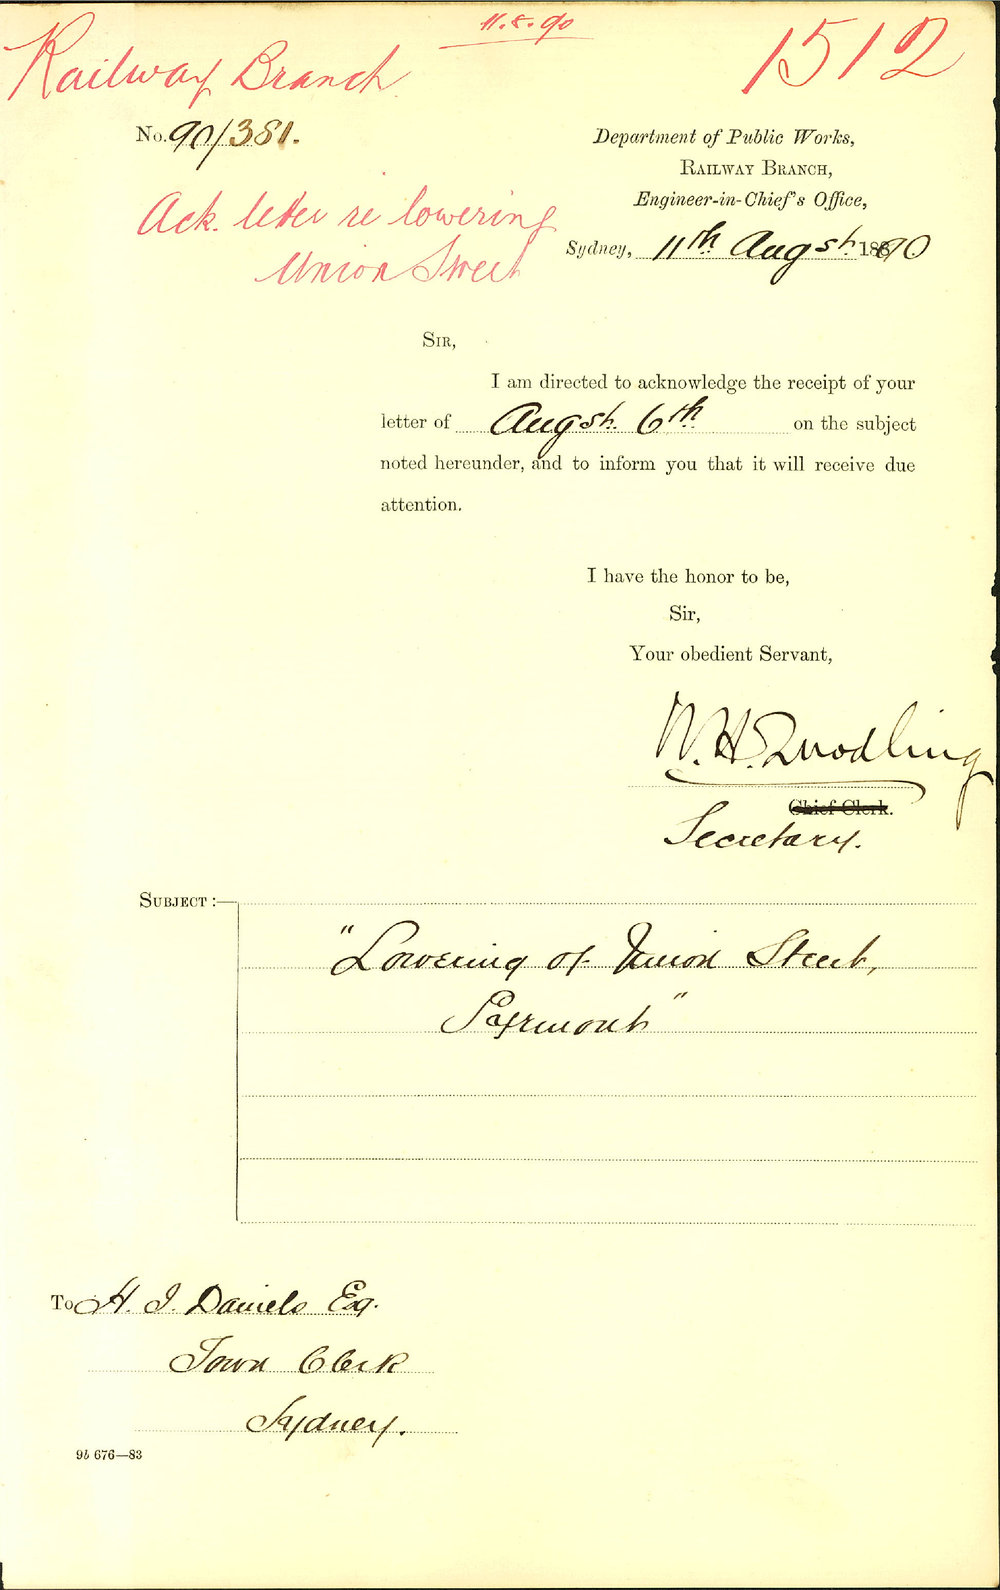 11.8.90
Railway Branch
1512
No. 90/381.
Department of Public Works,
RAILWAY BRANCH,
Engineer-in-Chief's Office,
Ack. letter re lowering
Union Street
Sydney, 11th Augst. 1890
SIR,
I am directed to acknowledge the receipt of your
letter of Augst. 6th on the subject
noted hereunder, and to inform you that it will receive due
attention.
I have the honor to be,
Sir,
Your obedient Servant,
W. H. Quodling
Chief Clerk.
Secretary.
SUBJECT :—
"Lowering of Union Street,
Pyrmont"
To H. J. Daniels Esq.
Town Clerk
Sydney.
9b 676—83